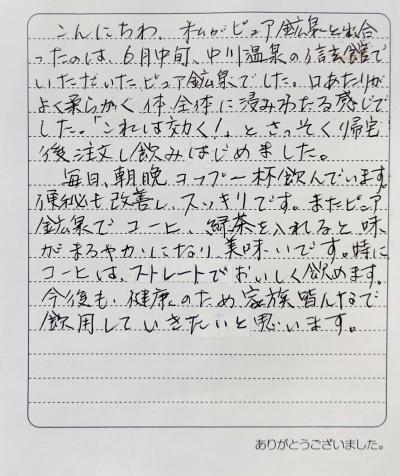 こんにちわ、私がピュア鉱泉と出合
ったのは、6月中旬、中川温泉の信玄館で
いただいたピュア鉱泉でした。口あたりが
よく柔らかく体全体に浸みわたる感じで
した。「これは効く！」とさっそく帰宅
後注文し飲みはじめました。
毎日、朝晩コップ一杯飲んでいます。
便秘も改善し、スッキリです。またピュア
鉱泉でコーヒー、緑茶を入れると味
がまろやかになり、美味いです。特に
コーヒーは、ストレートでおいしく飲めます。
今後も、健康のため、家族皆んなで
飲用していきたいと思います。
ありがとうございました。